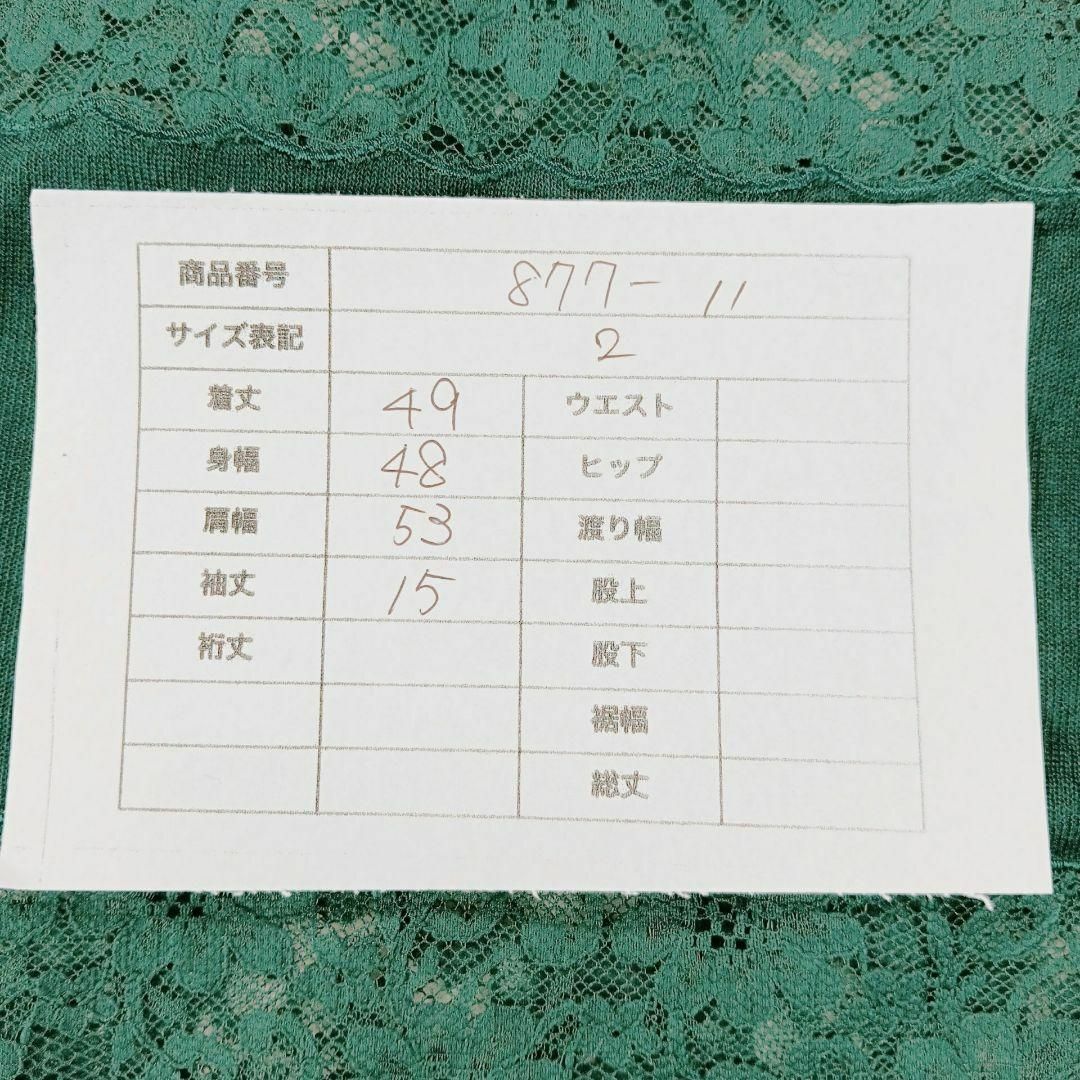 商品番号 877-11
サイズ表記 2
着丈 49 ウエスト
身幅 48 ヒップ
肩幅 53 渡り幅
袖丈 15 股上
裄丈 股下
裾幅
総丈